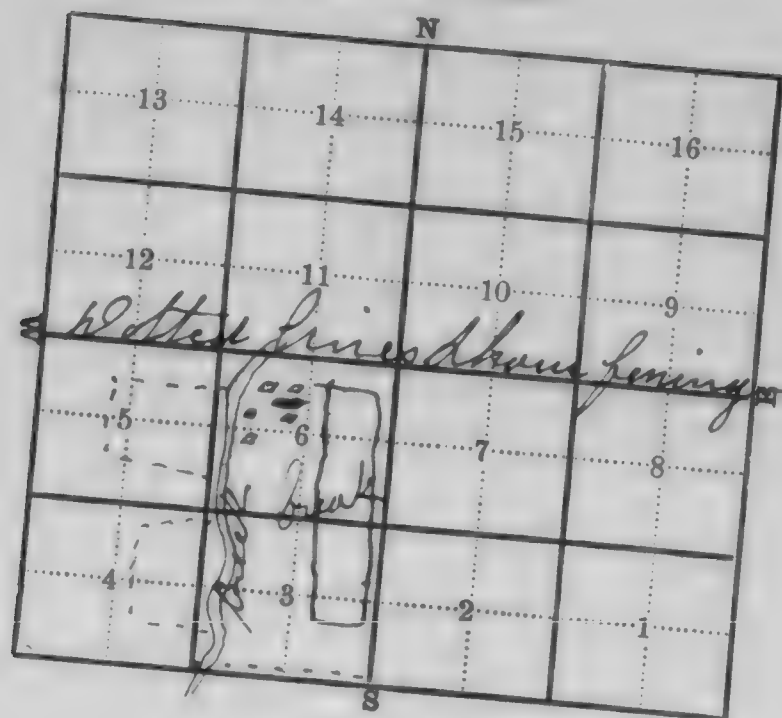 N
13 14 15 16
12 11 10 9
W Dotted Lines Shows fencing E
5 6 7 8
break
4 3 2 1
S